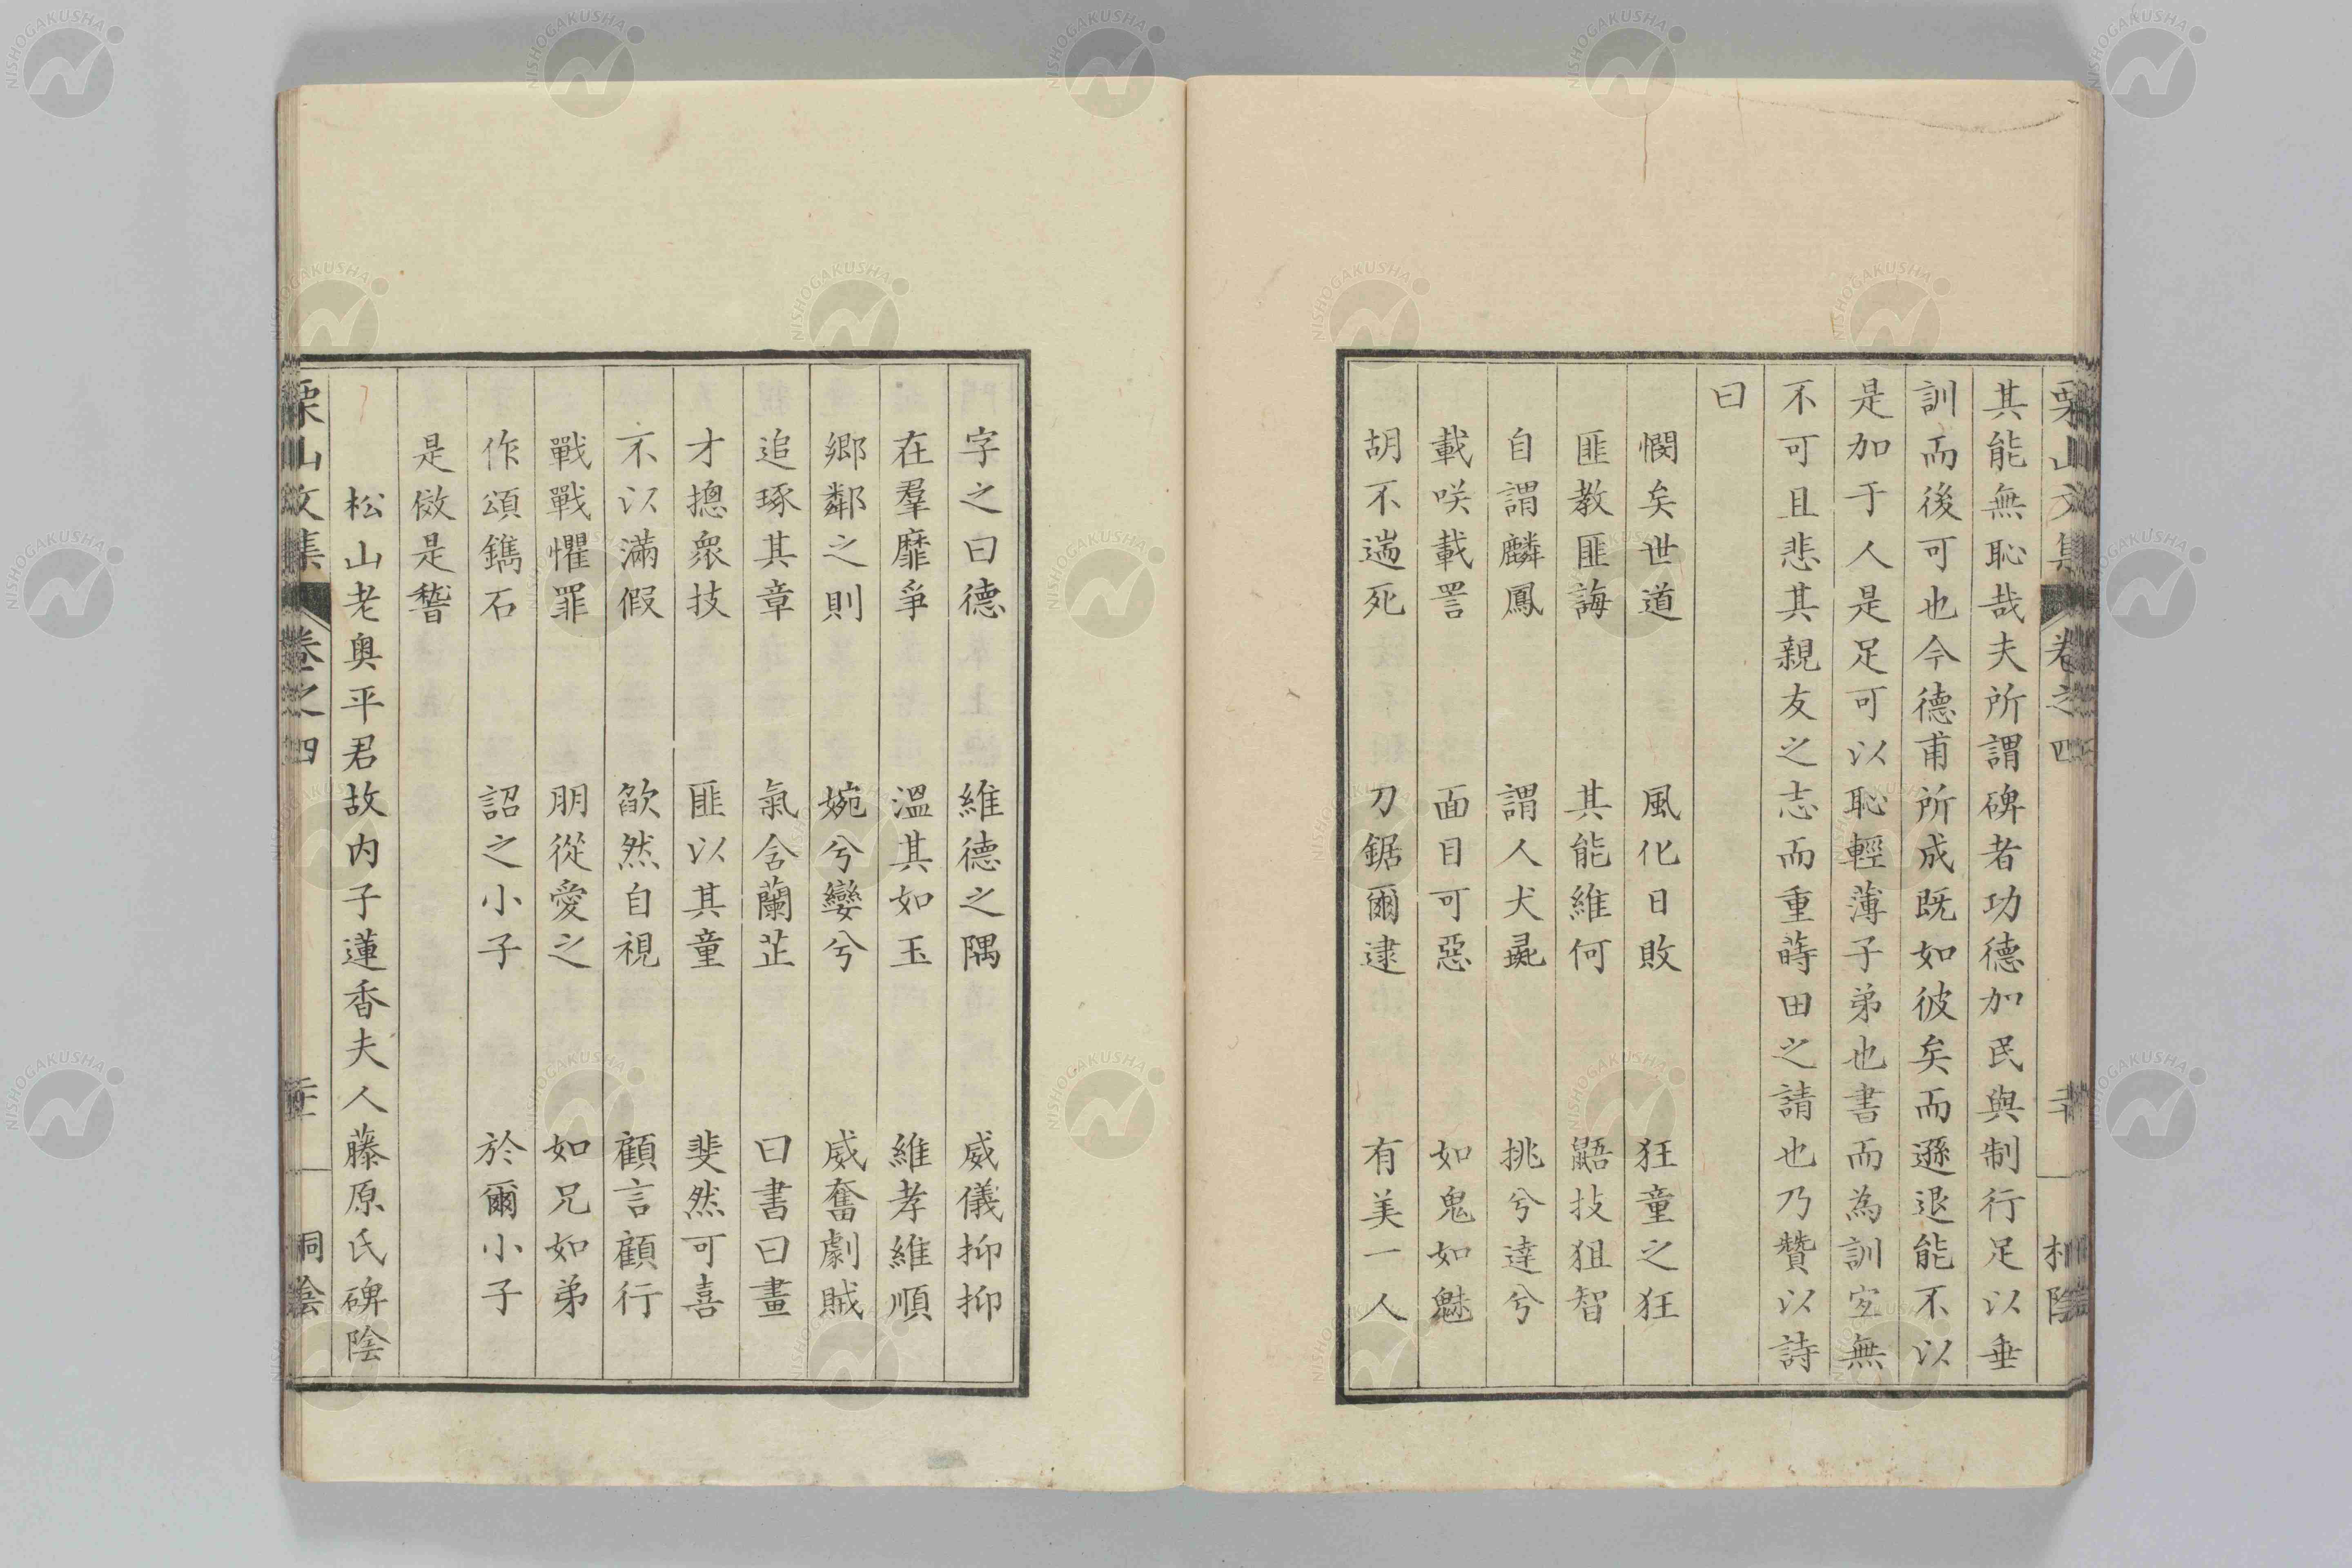 栗山文集 卷之四
其能無恥哉夫所謂碑者功德加民與制行足以垂
訓而後可也今德甫所成既如彼矣而遜退能不以
是加于人是足可以恥輕薄子弟也書而為訓宐無
不可且悲其親友之志而重蒔田之請也乃贊以詩
曰
憫矣世道 風化日敗 狂童之狂
匪教匪誨 其能維何 鼯技狙智
自謂麟鳳 謂人犬彘 挑兮達兮
載咲載詈 面目可惡 如鬼如魅
胡不遄死 刀鋸爾逮 有美一人
字之曰德 維德之隅 威儀抑抑
在羣靡爭 溫其如玉 維孝維順
鄉鄰之則 婉兮孌兮 威奮劇賊
追琢其章 氣含蘭芷 曰書曰畫
才摠衆技 匪以其童 斐然可喜
不以滿假 欿然自視 顧言顧行
戰戰懼罪 朋從愛之 如兄如弟
作頌鐫石 詔之小子 於爾小子
是傚是誓
松山老奥平君故内子蓮香夫人藤原氏碑陰
栗山文集 卷之四 桐陰
NISHOGAKUSHA